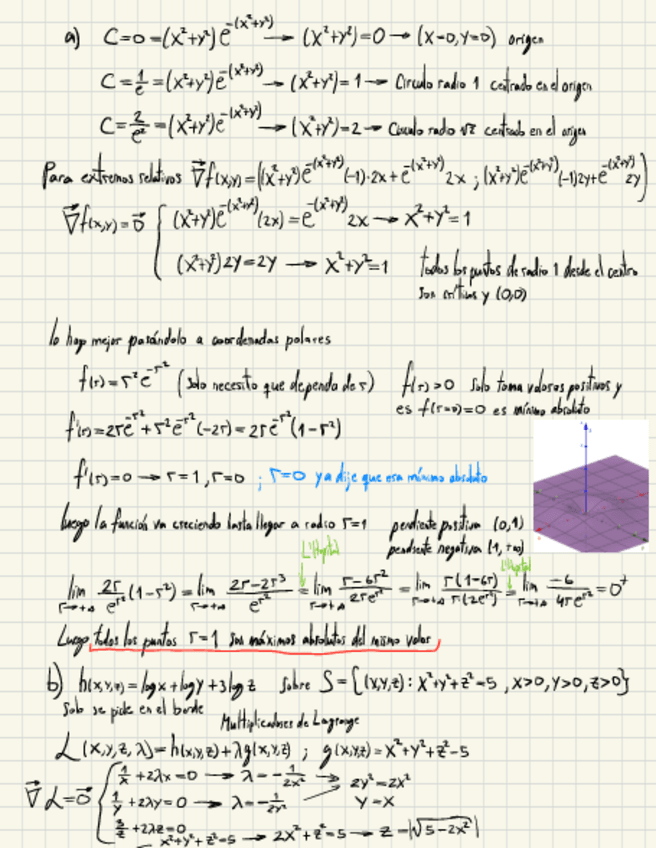 a) C=0=(x²+y²)e^-(x²+y²) → (x²+y²)=0 → (x=0,y=0) origen
C=1/e=(x²+y²)e^-(x²+y²) → (x²+y²)=1 → Circulo radio 1 centrado en el origen
C=2/e²=(x²+y²)e^-(x²+y²) → (x²+y²)=2 → Circulo radio √2 centrado en el origen
Para extremos relativos ∇f(x,y)=((x²+y²)e^-(x²+y²)(-1)·2x+e^-(x²+y²)2x ; (x²+y²)e^-(x²+y²)(-1)2y+e^-(x²+y²)2y)
∇f(x,y)=0 { (x²+y²)e^-(x²+y²)(2x)=e^-(x²+y²)2x → x²+y²=1
(x²+y²)2y=2y → x²+y²=1 todos los puntos de radio 1 desde el centro
son críticos y (0,0)
lo hago mejor pasándolo a coordenadas polares
f(r)=r²e^-r² (solo necesito que dependa de r) f(r)>0 solo toma valores positivos y
es f(r=0)=0 es mínimo absoluto
f'(r)=2re^-r²+r²e^-r²(-2r)=2re^-r²(1-r²)
f'(r)=0 → r=1, r=0 ; r=0 ya dije que era mínimo absoluto
luego la función va creciendo hasta llegar a radio r=1 pendiente positiva (0,1)
pendiente negativa (1,+∞)
L'Hopital L'Hopital
lim r→+∞ 2r/e^r² (1-r²) = lim r→+∞ (2r-2r³)/e^r² = lim r→+∞ (r-6r²)/(2re^r²) = lim r→+∞ r(1-6r)/(r(2e^r²)) = lim r→+∞ -6/(4re^r²) = 0⁺
Luego todos los puntos r=1 son máximos absolutos del mismo valor
b) h(x,y,z)=logx+logy+3logz sobre S={(x,y,z): x²+y²+z²=5, x>0, y>0, z>0}
Solo se pide en el borde
Multiplicadores de Lagrange
L(x,y,z,λ)=h(x,y,z)+λg(x,y,z) ; g(x,y,z)=x²+y²+z²-5
∇L=0 { 1/x+2λx=0 → λ=-1/2x² → 2y²=2x²
1/y+2λy=0 → λ=-1/2y² → y=x
3/z+2λz=0
x²+y²+z²=5 → 2x²+z²=5 → z=|√5-2x²|